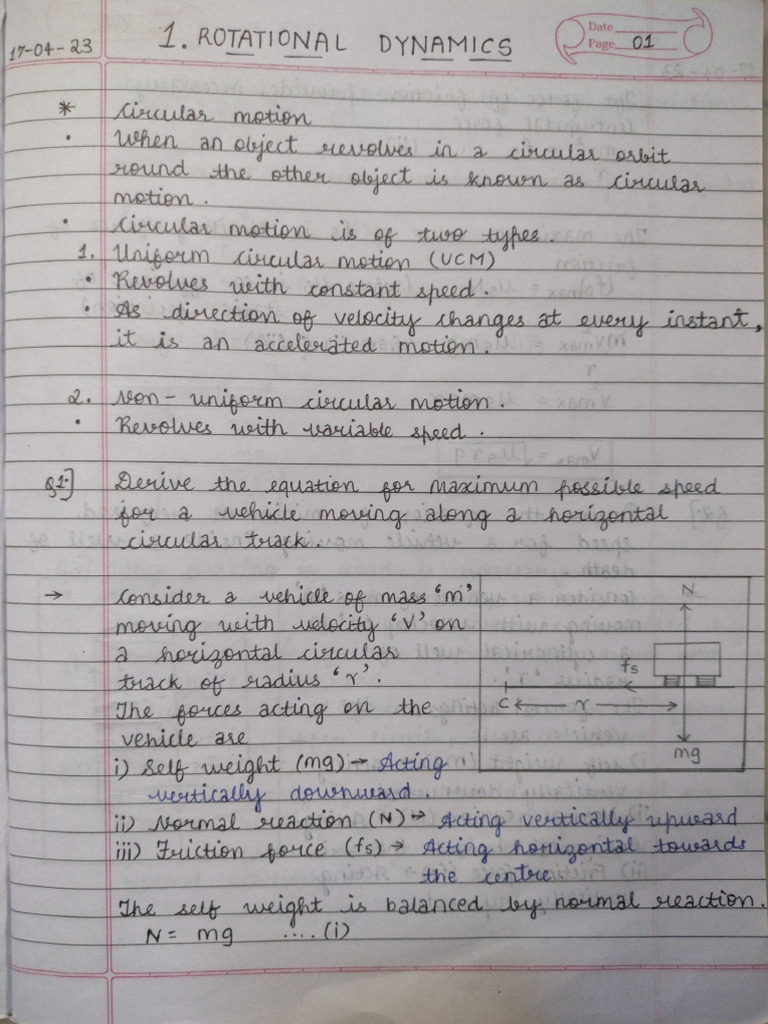 17-04-23
1. ROTATIONAL DYNAMICS
Date
Page 01
* Circular motion
• When an object revolves in a circular orbit
round the other object is known as circular
motion.
• Circular motion is of two types.
1. Uniform circular motion (UCM)
• Revolves with constant speed.
• As direction of velocity changes at every instant,
it is an accelerated motion.
2. Non-uniform circular motion.
• Revolves with variable speed.
Q1.] Derive the equation for maximum possible speed
for a vehicle moving along a horizontal
circular track.
→ Consider a vehicle of mass 'm'
moving with velocity 'V' on
a horizontal circular
track of radius 'r'.
The forces acting on the
vehicle are
N
fs
C r
mg
i) Self weight (mg) → Acting
vertically downward.
ii) Normal reaction (N) → Acting vertically upward
iii) Friction force (fs) → Acting horizontal towards
the centre
The self weight is balanced by normal reaction.
N = mg ....(i)